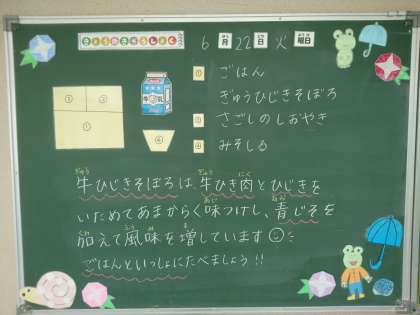 きょうのきゅうしょく
6月22日火曜日
① ごはん
ぎゅうひじきそぼろ
③ さごしのしおやき
④ みそしる
③ ②
①
④
牛乳
牛ひじきそぼろは、牛ひき肉とひじきを
いためてあまからく味つけし、青じそを
加えて風味を増しています
ごはんといっしょにたべましょう!!